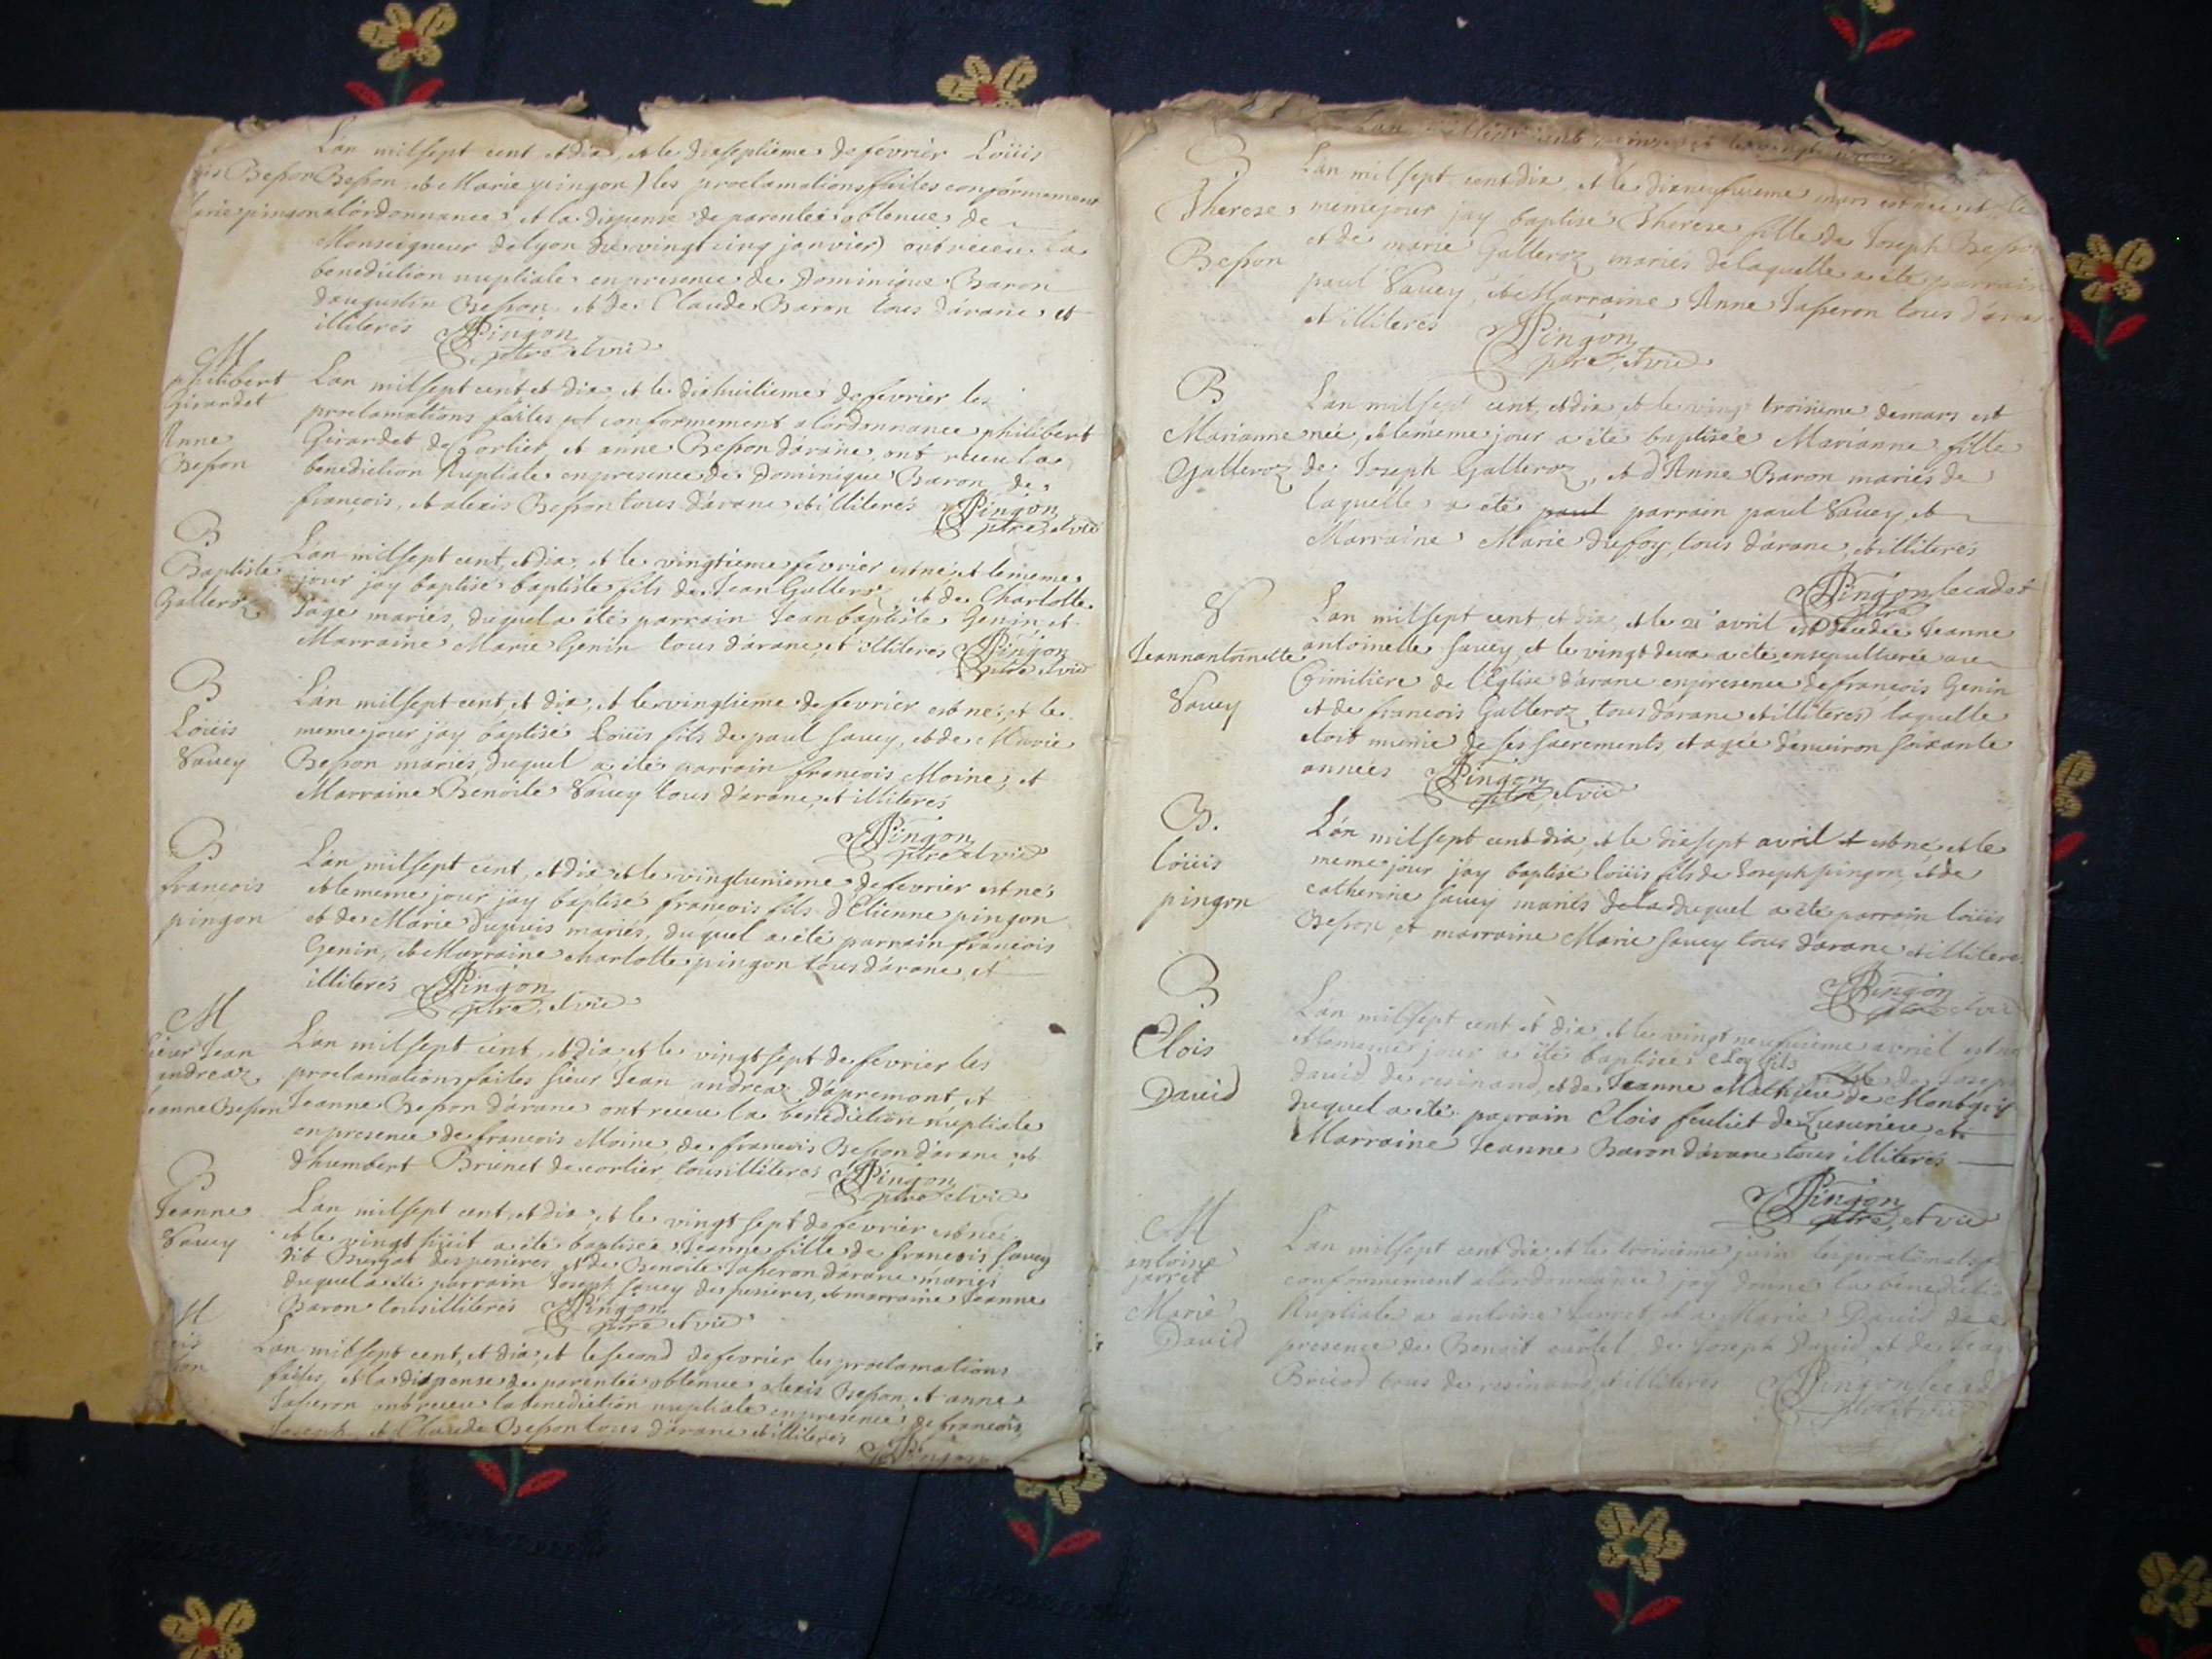 L'an mil sept cent et dix, et le dixseptieme de fevrier Loüis
Besson Besson et Marie pingon) les proclamations faites conformement
marie pingon a l'ordonnance, et la dispense de parentée obtenue de
Monseigneur de lyon du vingt cinq janvier) ont receu la
benediction nuptiale en presence de Dominique Baron
d'augustin Besson, et de Claude Baron tous d'arane et
illiterés Pingon
ptre et vic
M
philibert
Girardet
Anne
Besson
L'an mil sept cent et dix, et le dixhuitieme de fevrier les
proclamations faites conformement a l'ordonnance philibert
Girardet de Corlier, et anne Besson d'arane, ont receu la
benediction Nuptiale en presence de Dominique Baron de
francois, et alexis Besson tous d'arane et illiterés Pingon
ptre et vic
B
Baptiste
Galleroz
L'an mil sept cent, et dix, et le vingtieme fevrier est né, et le meme
jour jay baptisé baptiste fils de Jean Galleroz, et de Charlotte
Sage mariés, duquel a été parrain Jean baptiste Genin et
Marraine Marie Genin tous d'arane, et illiterés Pingon
ptre et vic
B
Loüis
Savey
L'an mil sept cent, et dix, et le vingtieme de fevrier est né, et le
meme jour jay baptisé Loüis fils de paul savey, et de Marie
Besson mariés, duquel a été parrain francois Moine, et
Marraine Benoite Savey tous d'arane, et illiterés
Pingon
ptre et vic
B
francois
pingon
L'an mil sept cent, et dix et le vingtunieme de fevrier est né
et le meme jour jay baptisé francois fils d'Etienne pingon
et de Marie Dupuis mariés, duquel a été parrain francois
Genin, et Marraine charlotte pingon tous d'arane, et
illiterés Pingon
ptre, et vic
M
sieur Jean
andreaz
Jeanne Besson
L'an mil sept cent, et dix, et le vingt sept de fevrier les
proclamations faites sieur Jean andreaz d'apremont, et
Jeanne Besson d'arane ont receu la benediction nuptiale
en presence de francois Moine, de francois Besson d'arane, et
d'humbert Brunet de corlier, tous illiterés Pingon
ptre et vic
B
Jeanne
Savey
L'an mil sept cent, et dix, et le vingt sept de fevrier est née
et le vingt huit a été baptisée Jeanne fille de francois savey
dit Burgat des pesieres, et de Benoite Jasseron d'arane mariés
duquel a été parrain Joseph savey des pesieres, et marraine Jeanne
Baron tous illiterés Pingon
ptre et vic
M
L'an mil sept cent, et dix, et le second de fevrier les proclamations
faites, et la dispense de parentée obtenue alexis Besson, et anne
Jasseron ont receu la benediction nuptiale en presence de francois
Joseph et Claude Besson tous d'arane et illiterés
Pingon
B
Therese
Besson
L'an mil sept cent dix, et le dixneufvieme mars est née et le
meme jour jay baptisé Therese fille de Joseph Besson
et de marie Galleroz mariés de laquelle a été parrain
paul Savey, et Marraine Anne Jasseron tous d'arane
et illiterés Pingon
ptre, et vic
B
Marianne
Galleroz
L'an mil sept cent, et dix et le ving troisieme de mars est
née, et le meme jour a été baptisée Marianne fille
de Joseph Galleroz, et d'Anne Baron mariés de
laquelle a été paul parrain paul Savey, et
Marraine Marie Dufoy, tous d'arane, et illiterés
Pingon le cadet
ptre
S
Jeannantoinette
Savey
L'an mil sept cent, et dix, et le 21 avril est decedée Jeanne
antoinette savey, et le vingt deux a été ensepulturée au
Cimitiere de l'Eglise d'arane en presence de francois Genin
et de francois Galleroz tous d'arane et illiterés) laquelle
etoit munie de ses sacrements, et agée d'environ soixante
années Pingon
ptre et vic
B.
loüis
pingon
L'an mil sept cent dix, et le dixsept avril est né, et le
meme jour jay baptisé loüis fils de Joseph pingon, et de
catherine savey mariés dela duquel a été parrain loüis
Besson, et marraine Marie savey tous d'arane et illiterés
Pingon
ptre et vic
B
Elois
David
L'an mil sept cent et dix, et le vingt neufvieme avriel est né
et le meme jour a été baptisée Eloy fils de Joseph
david de resinand, et de Jeanne Mathieu de
duquel a été parrain Elois feuliet de et
Marraine Jeanne Baron d'arane tous illiterés
Pingon
ptre, et vic
M
antoine
jarret
Marie
David
L'an mil sept cent dix et le troisieme juin les proclamats f
conformement a l'ordonnance jay donné la benedictio
Nuptiale a antoine Jarret, et a Marie David de
presence de Benoit de Joseph David et de
tous de resinand, et illiterés Pingon le cad
ptre et vic